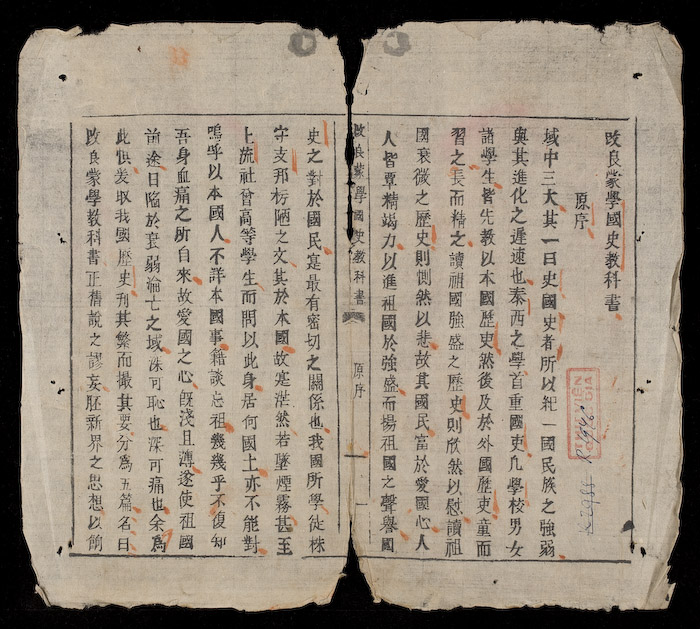 改良蒙學國史教科書
原序
域中三大其一曰史國史者所以紀一國民族之強弱
與其進化之遲速也秦西之學首重國史凡學校男女
諸學生皆先教以本國歷史然後及於外國歷史童而
習之長而精之讀祖國強盛之歷史則欣然以慰讀祖
國衰微之歷史則惻然以悲故其國民富於愛國心人
人皆覃精竭力以進祖國於強盛而揚祖國之聲譽國
改良蒙學國史教科書
原序
一
史之對於國民寔最有密切之關係也我國所學徒株
守支那朽陋之文其於本國故寔茫然若墜煙霧甚至
上流社會高等學生而問以此身居何國土亦不能對
嗚乎以本國人不詳本國事籍談忘祖幾幾乎不復知
吾身血痛之所自來故愛國之心旣淺且薄遂使祖國
前途日臨於衰弱淪亡之域洙可恥也深可痛也余爲
此惧爰取我國歷史刋其繁而撮其要分爲五篇名曰
改良蒙學教科書正稽說之謬妄胚新界之思想以餉
THƯ VIỆN
R.1946